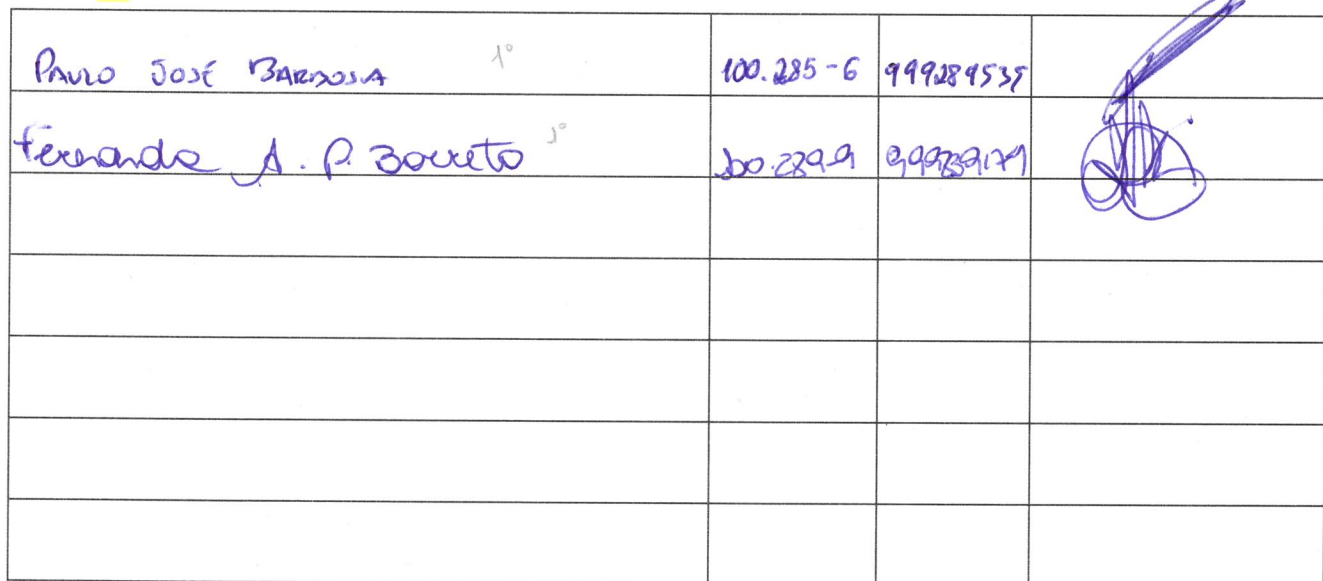 PAULO JOSÉ BARBOSA 1º 100.285-6 999289535
Fernanda A. P. Barreto 1º 100.289-9